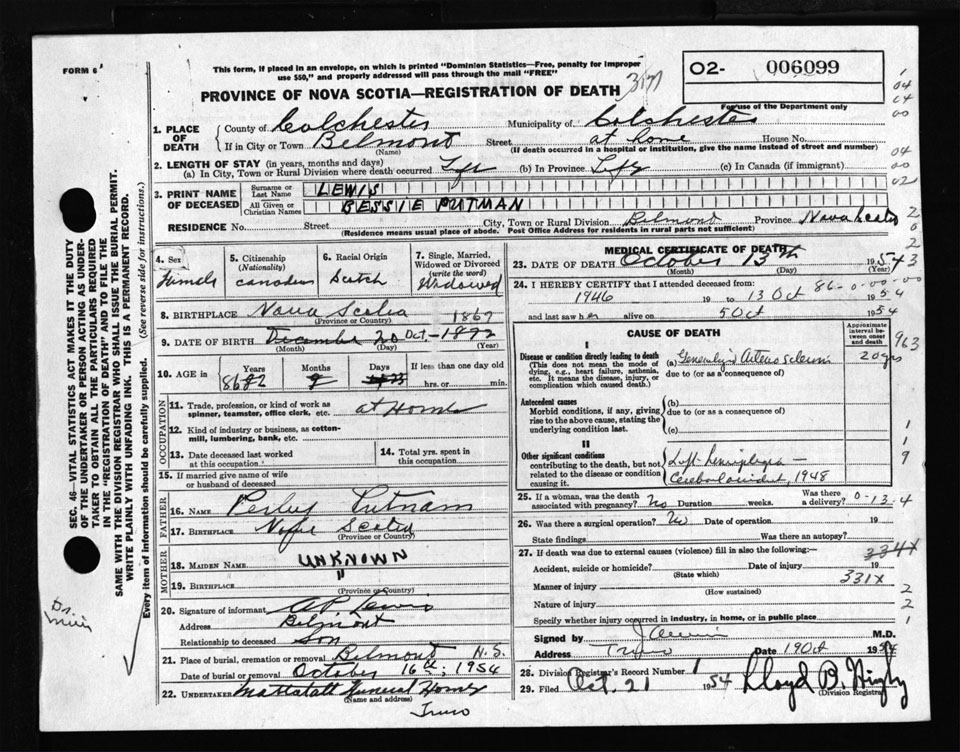 FORM 6
This form, if placed in an envelope, on which is printed "Dominion Statistics—Free, penalty for improper
use $50," and properly addressed will pass through the mail "FREE"
PROVINCE OF NOVA SCOTIA—REGISTRATION OF DEATH
O2- 006099
For use of the Department only
1. PLACE OF DEATH
County of Colchester Municipality of Colchester
If in City or Town Belmont Street at home House No.
(Name) (If death occurred in a hospital or institution, give the name instead of street and number)
2. LENGTH OF STAY (in years, months and days)
(a) In City, Town or Rural Division where death occurred Life (b) In Province Life (c) In Canada (if immigrant)
3. PRINT NAME OF DECEASED
Surname or Last Name LEWIS
All Given or Christian Names BESSIE PUTMAN
RESIDENCE No. Street City, Town or Rural Division Belmont Province Nova Scotia
(Residence means usual place of abode. Post Office Address for residents in rural parts not sufficient)
4. Sex
Female
5. Citizenship
(Nationality)
Canadian
6. Racial Origin
Scotch
7. Single, Married,
Widowed or Divorced
(write the word)
Widowed
8. BIRTHPLACE Nova Scotia 1867
(Province or Country)
9. DATE OF BIRTH December 20 Oct- 1872
(Month) (Day) (Year)
10. AGE in
Years Months Days If less than one day old
8682
hrs. or min.
OCCUPATION
11. Trade, profession, or kind of work as
spinner, teamster, office clerk, etc. at Home
12. Kind of industry or business, as cotton-
mill, lumbering, bank, etc.
13. Date deceased last worked
at this occupation
14. Total yrs. spent in
this occupation
15. If married give name of wife
or husband of deceased
FATHER
16. Name Perley Putnam
17. Birthplace Nova Scotia
MOTHER
18. Maiden Name UNKNOWN
19. Birthplace "
(Province or Country)
20. Signature of informant A.P. Lewis
Address Belmont
Relationship to deceased Son
21. Place of burial, cremation or removal Belmont N.S.
Date of burial or removal October 16th, 1954
22. Undertaker Mattatall Funeral Home
(Name and address)
Truro
MEDICAL CERTIFICATE OF DEATH
23. DATE OF DEATH October 13th 1954
(Month) (Day) (Year)
24. I HEREBY CERTIFY that I attended deceased from:
1946 19 to 13 Oct 1954
and last saw her alive on 5 Oct 1954
CAUSE OF DEATH
Approximate
interval
between
onset and
death
I
Disease or condition directly leading to death
(This does not mean the mode of
dying, e.g., heart failure, asthenia,
etc. It means the disease, injury, or
complication which caused death.)
(a) Generalized Arterio Sclerosis 20 yrs
due to (or as a consequence of)
Antecedent causes
Morbid conditions, if any, giving
rise to the above cause, stating the
underlying condition last.
(b)
due to (or as a consequence of)
(c)
II
Other significant conditions
contributing to the death, but not
related to the disease or condition
causing it.
Left hemiplegia —
Cerebral accident, 1948
25. If a woman, was the death
associated with pregnancy? No Duration weeks. Was there
a delivery?
26. Was there a surgical operation? No Date of operation 19
State findings Was there an autopsy?
27. If death was due to external causes (violence) fill in also the following:—
Accident, suicide or homicide? Date of injury 19
(State which)
Manner of injury
(How sustained)
Nature of injury
Specify whether injury occurred in industry, in home, or in public place
Signed by M.D.
Address Truro Date 19 Oct 1954
28. Division Registrar's Record Number
29. Filed Oct. 21 1954 Lloyd B. Higby
(Division Registrar)
334X
331X
86-0-00-00
963
0-13-4
SEC. 46—VITAL STATISTICS ACT MAKES IT THE DUTY
OF THE UNDERTAKER OR PERSON ACTING AS UNDER-
TAKER TO OBTAIN ALL THE PARTICULARS REQUIRED
IN THE "REGISTRATION OF DEATH" AND TO FILE THE
SAME WITH THE DIVISION REGISTRAR WHO SHALL ISSUE THE BURIAL PERMIT.
WRITE PLAINLY WITH UNFADING INK. THIS IS A PERMANENT RECORD.
Every item of information should be carefully supplied. (See reverse side for instructions.)